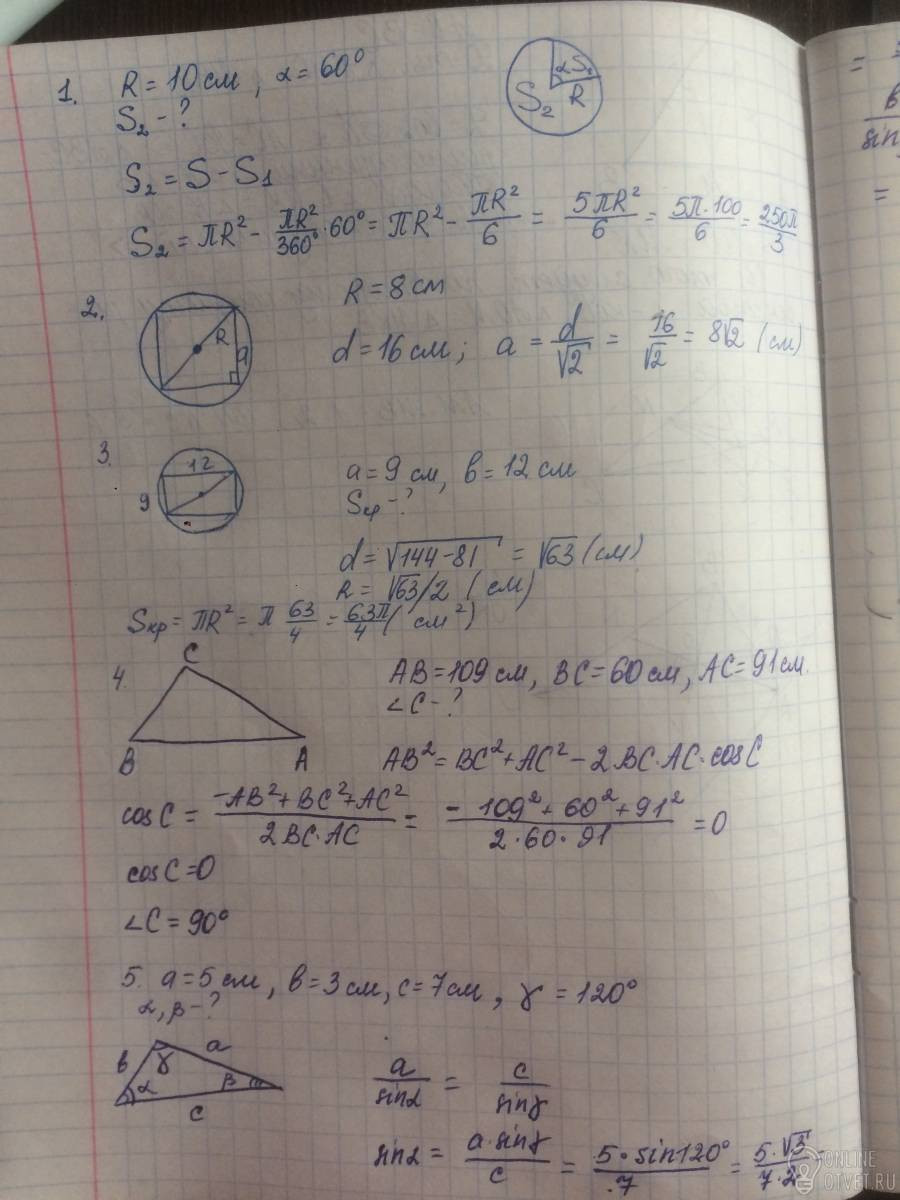 1. R = 10 см, α = 60°
S₂ - ?
αS₁
S₂ R
S₂ = S - S₁
S₂ = πR² - πR²/360° · 60° = πR² - πR²/6 = 5πR²/6 = 5π·100/6 = 250π/3
2. R = 8 см
R
a
d = 16 см; a = d/√2 = 16/√2 = 8√2 (см)
3.
12
9
a = 9 см, в = 12 см
Sкр - ?
d = √144-81 = √63 (см)
R = √63/2 (см)
Sкр = πR² = π 63/4 = 63π/4 (см²)
4. C
B A
AB = 109 см, BC = 60 см, AC = 91 см.
∠C - ?
AB² = BC² + AC² - 2BC·AC·cosC
cosC = -AB²+BC²+AC²/2BC·AC = -109²+60²+91²/2·60·91 = 0
cosC = 0
∠C = 90°
5. a = 5 см, в = 3 см, c = 7 см, γ = 120°
α, β - ?
в γ a
α β
c
a/sinα = c/sinγ
sinα = a·sinγ/c = 5·sin120°/7 = 5·√3/7·2
=
в
sin
=
ONLINE
OTVET.RU